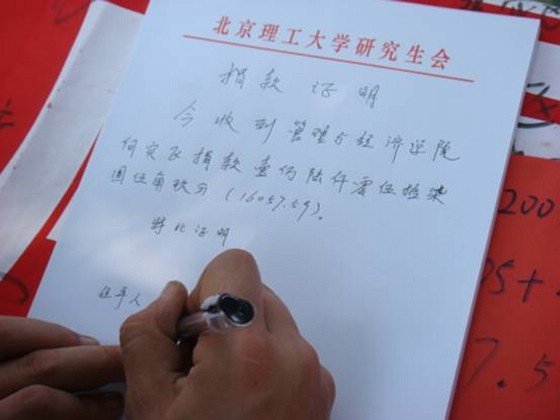 北京理工大学研究生会
捐款证明
今收到管理与经济学院
灾民捐款壹万陆仟零伍拾柒
圆伍角玖分(16057.59)。
特此证明
经手人
200
5+
7.5